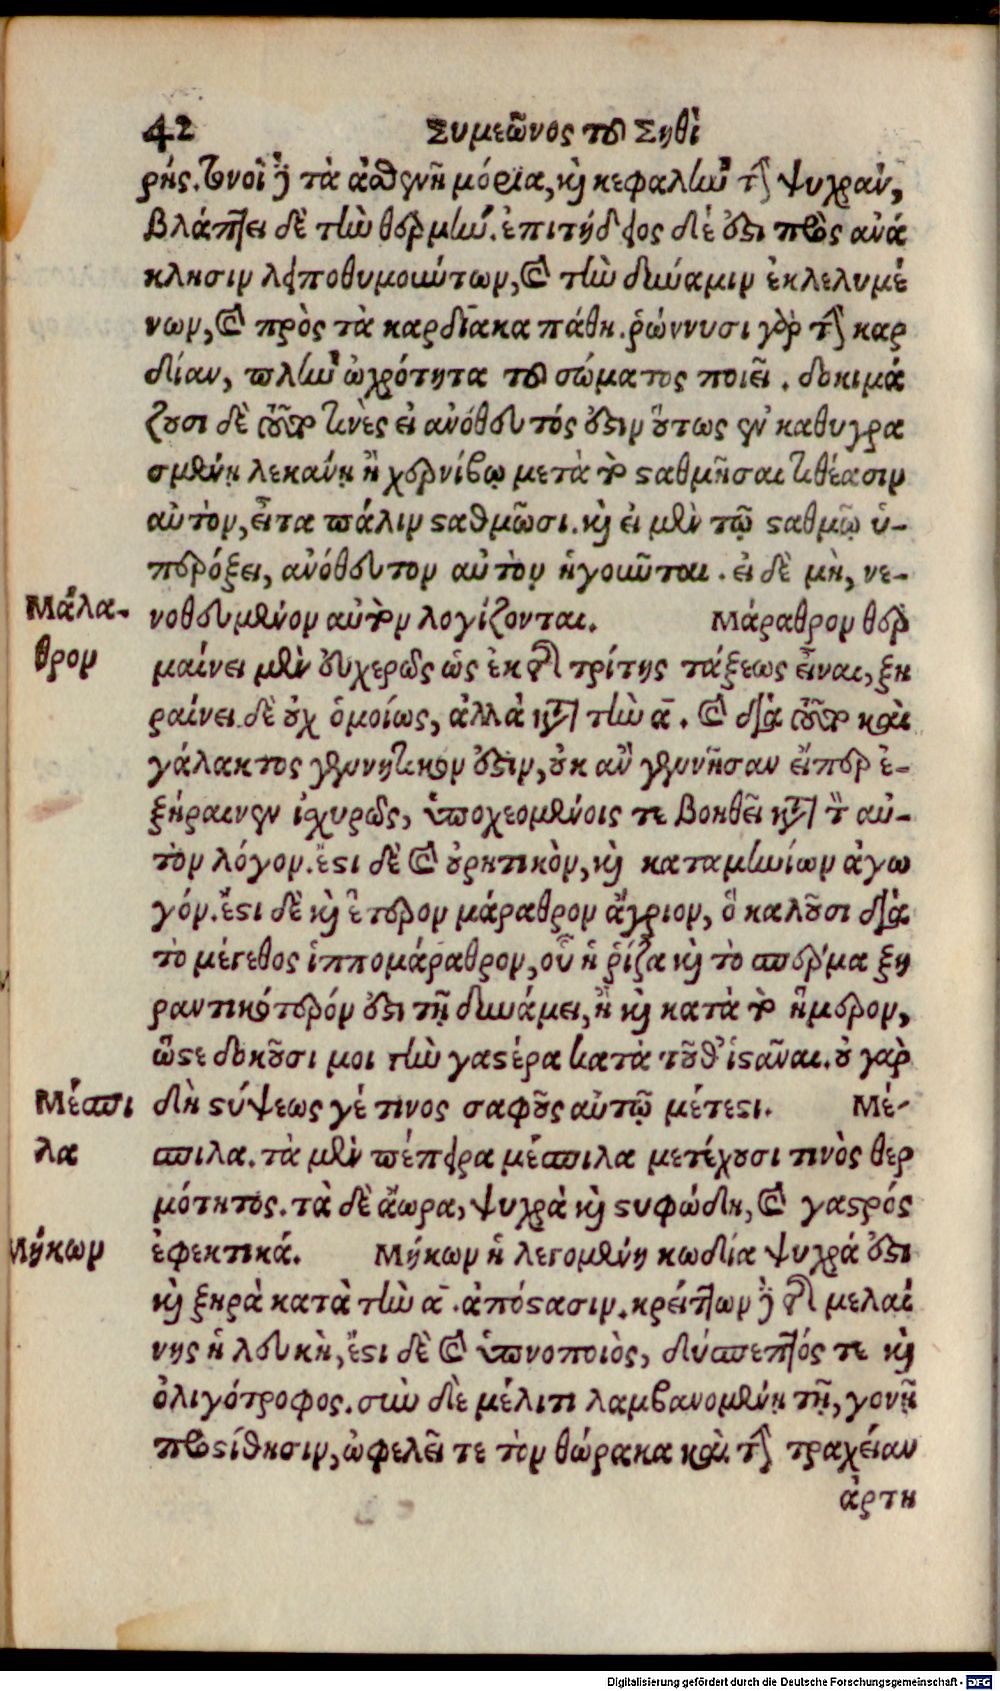 42 Συμεῶνος τοῦ Σηθὶ
ρής. τονοῖ δὲ τὰ ἀσθενῆ μόρια, καὶ κεφαλὴν τὴν ψυχρὰν,
βλάπτει δὲ τὴν θερμήν. ἐπιτήδειος δέ ἐστι πρὸς ἀνά
κλησιν λειποθυμούντων, καὶ τὴν δύναμιν ἐκλελυμέ
νων, καὶ πρὸς τὰ καρδιακα πάθη. ῥώννυσι γὰρ τὴν καρ
δίαν, πλὴν ὠχρότητα τοῦ σώματος ποιεῖ. δοκιμά
ζουσι δὲ τοῦτον τινὲς εἰ ἀνόθευτός ἐστιν οὕτως ἐν καθυγρα
σμένῃ λεκάνῃ ἢ χερνίβῳ μετὰ τὸ σταθμῆσαι τιθέασιν
αὐτὸν, εἶτα πάλιν σταθμῶσι. καὶ εἰ μὲν τῷ σταθμῷ ὑ-
περέξει, ἀνόθευτον αὐτὸν ἡγοῦνται. εἰ δὲ μὴ, νε-
Μάλα-
θρον
νοθευμένον αὐτὸν λογίζονται. Μάραθρον θερ
μαίνει μὲν εὐχερῶς ὡς ἐκ τῆς τρίτης τάξεως εἶναι, ξη
ραίνει δὲ οὐχ ὁμοίως, ἀλλὰ κατὰ τὴν α. καὶ διὰ τοῦτο καὶ
γάλακτος γεννητικόν ἐστιν, οὐκ ἂν γεννῆσαν εἴπερ ἐ-
ξήραινεν ἰσχυρῶς, ὑποχεομένοις τε βοηθεῖ κατὰ τὸν αὐ-
τὸν λόγον. ἔστι δὲ καὶ οὐρητικὸν, καὶ καταμηνίων ἀγω
γόν. ἔστι δὲ καὶ ἕτερον μάραθρον ἄγριον, ὃ καλοῦσι διὰ
τὸ μέγεθος ἱππομάραθρον, οὗ ἡ ῥίζα καὶ τὸ σπέρμα ξη
ραντικότερόν ἐστι τῇ δυνάμει, ἢ καὶ κατὰ τὸ ἥμερον,
ὥστε δοκοῦσι μοι τὴν γαστέρα κατὰ τοῦθ’ ἱστᾶναι. οὐ γὰρ
Μέσπι
λα
δὴ στύψεως γέ τινος σαφοῦς αὐτῷ μέτεστι. Μέ-
σπιλα. τὰ μὲν πέπειρα μέσπιλα μετέχουσι τινὸς θερ
μότητος. τὰ δὲ ἄωρα, ψυχρὰ καὶ στυφώδη, καὶ γαστρός
Μήκων
ἐφεκτικά. Μήκων ἡ λεγομένη κωδία ψυχρά ἐστι
καὶ ξηρὰ κατὰ τὴν α. ἀπόστασιν. κρείττων δὲ τῆς μελαί
νης ἡ λευκὴ, ἔστι δὲ καὶ ὑπνοποιὸς, δύσπεπτός τε καὶ
ὀλιγότροφος. σὺν δὲ μέλιτι λαμβανομένη τῇ, γονῇ
προστίθησιν, ὠφελεῖ τε τὸν θώρακα καὶ τὴν τραχεῖαν
ἀρτη
Digitalisierung gefördert durch die Deutsche Forschungsgemeinschaft - DFG